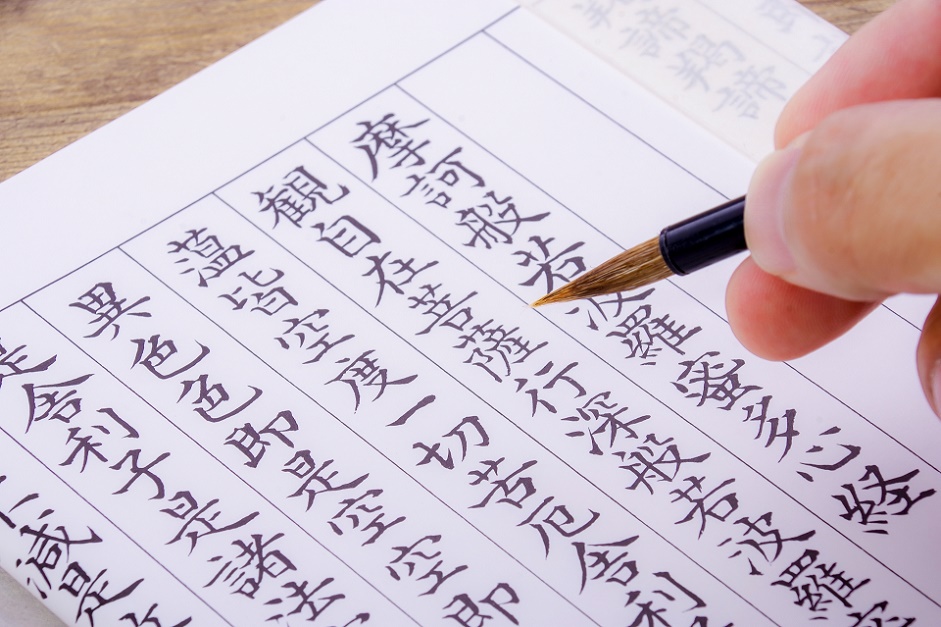 羯諦羯諦
摩訶般若波羅蜜多心経
観自在菩薩行深般若波羅
蘊皆空度一切苦厄舎利
異色色即是空空即
是舎利子是諸法
減是